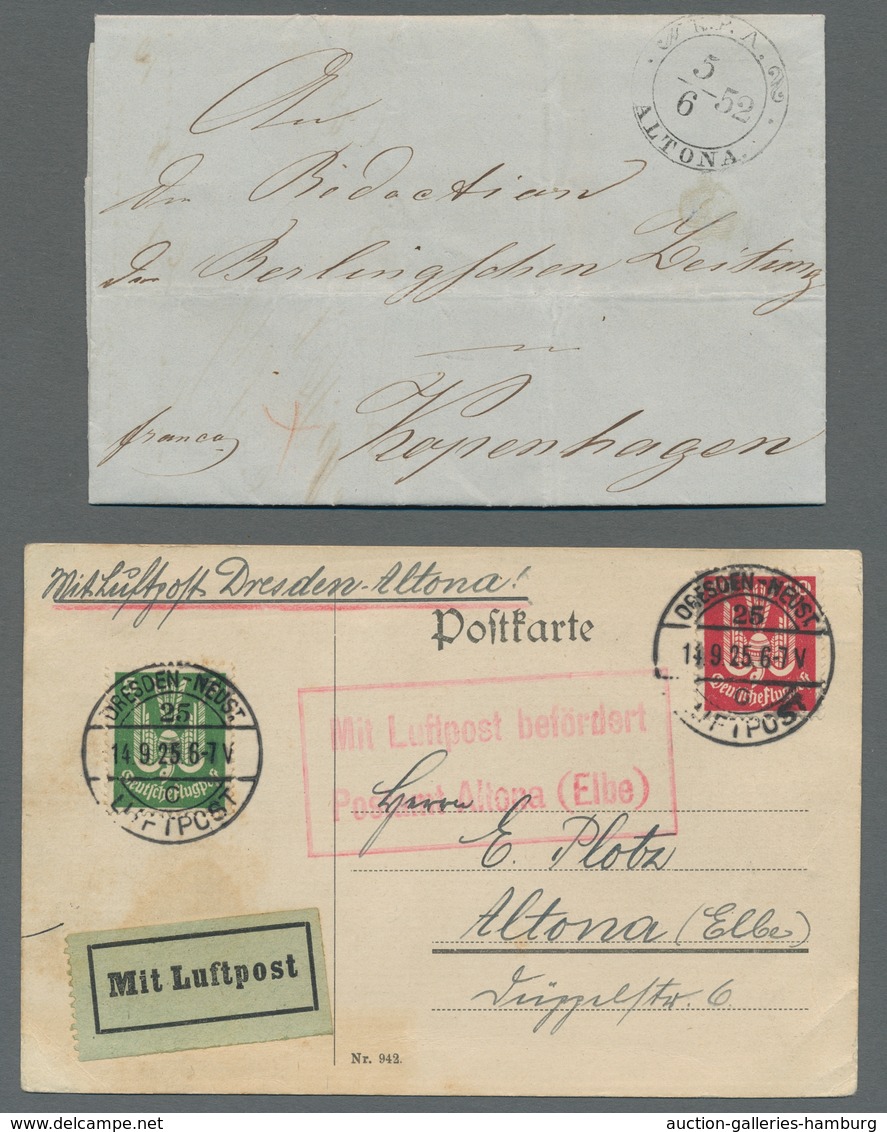 K.P.A.
5
6 - 52
ALTONA.
An
die Redaction
der Berlingschen Zeitung
in
franco
Kopenhagen
Mit Luftpost Dresden-Altona!
Postkarte
DRESDEN-NEUST.
25
14.9.25.6-7V
c
LUFTPOST
Deutsche Flugpost
DRESDEN-NEUST.
25
14.9.25.6-7V
c
LUFTPOST
Deutsche Flugpost
Mit Luftpost befördert
Postamt Altona (Elbe)
Herrn
E. Plotz
Altona (Elbe)
Düppelstr. 6
Mit Luftpost
Nr. 942.
auction-galleries-hamburg